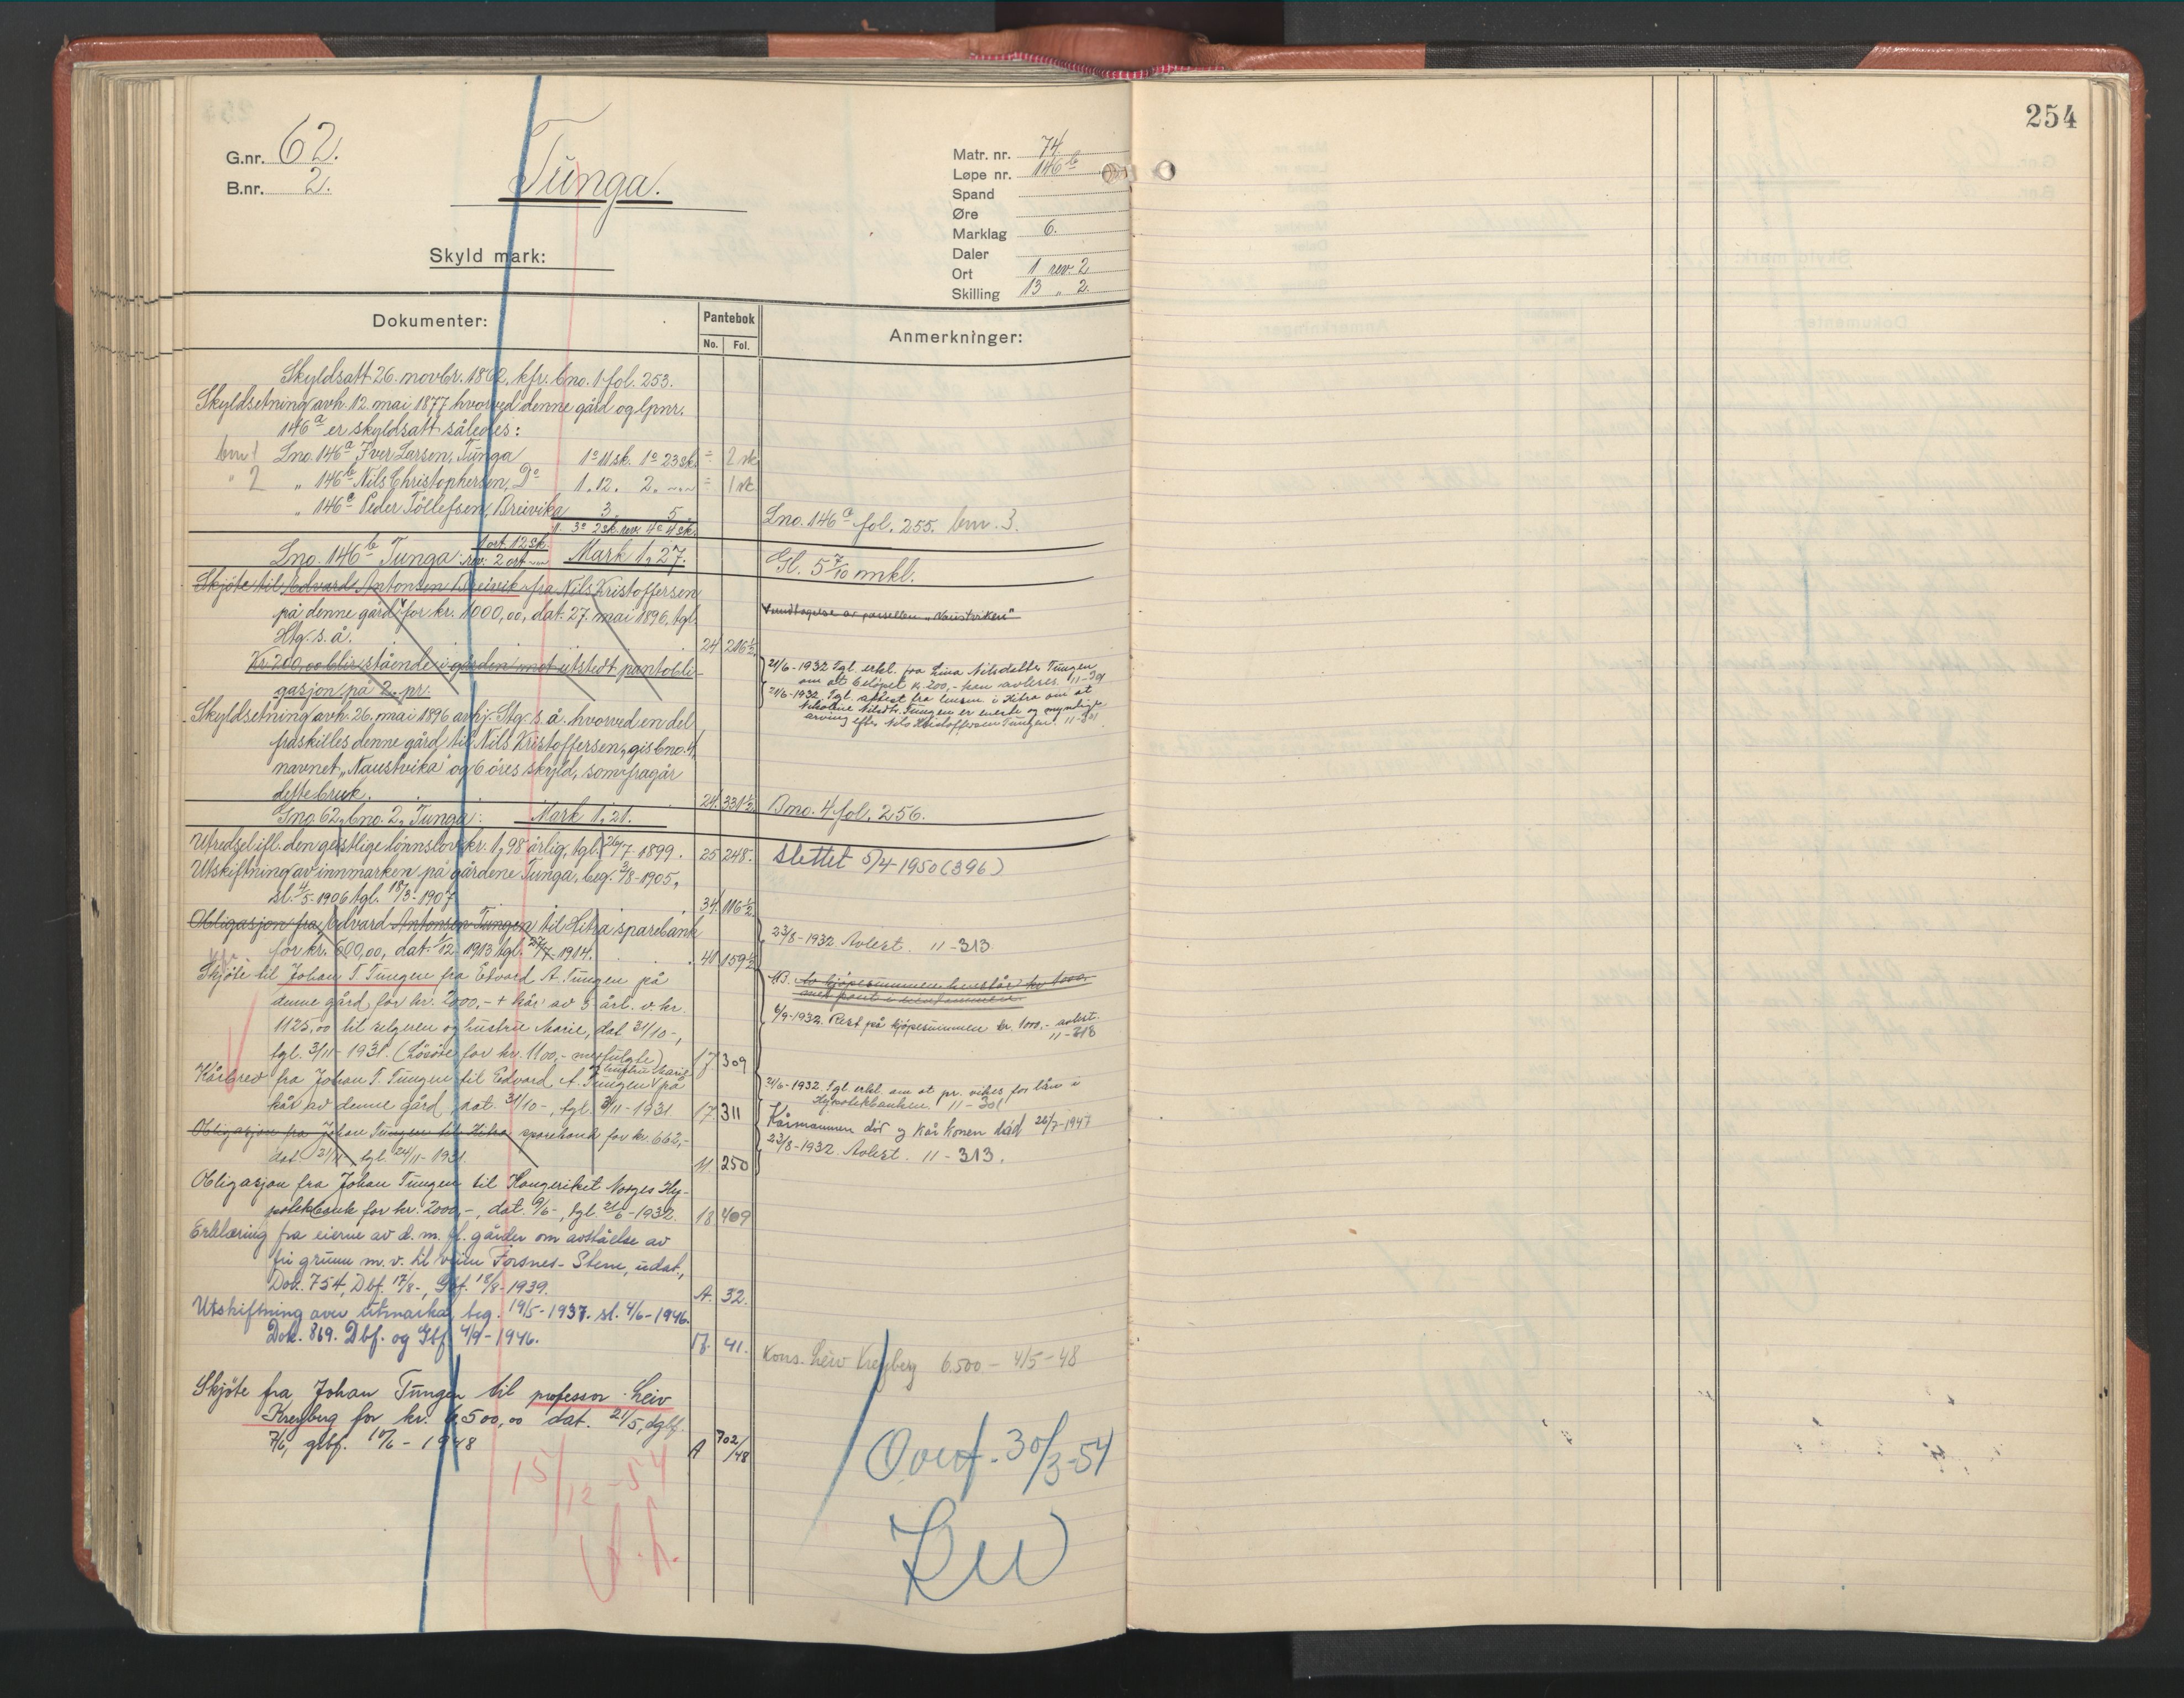 254
G.nr. 62.
B.nr. 2.
Tunga.
Matr. nr. 74.
Løpe nr. 146 b
Spand
Øre
Marklag 6.
Daler
Ort 1 rev. 2
Skilling 13 " 2.
Skyld mark:
Dokumenter:
Pantebok
No. Fol.
Anmerkninger:
Skyldsatt 26. novbr. 1862, kfr. bno. 1 fol. 253.
Skyldsetning avh. 12. mai 1877 hvorved denne gård og lpnr.
146 a er skyldsatt således:
bnr 1 Lno. 146 a Iver Larsen, Tunga 1 o 11 sk. 1 o 23 sk. = 2 sk
" 2 " 146 b Nils Christophersen, Do 1. 12. 2. = 1 st
" 146 c Peder Tøllefsen, Breivika 3 5
1. 3 o 2 sk. rev. 4 o 4 sk.
Lno. 146 c fol. 255. bnr. 3.
Lno. 146 b Tunga: 1 ort 12 sk. rev. 2 ort Mark 1,27.
Gl. 5 7/10 mkl.
Skjøte til Edvard Antonsen Breivik fra Nils Kristoffersen
på denne gård for kr. 1000,00, dat. 27. mai 1896, tgl.
Htg. s. å. 24 216½
Undtagelse av parsellen "Naustviken"
Kr. 200,00 blir stående i gården mot utstedt pantobli-
gasjon på 2. pr.
21/6-1932 Tgl. erkl. fra Lina Nilsdatter Tungen
om at beløpet kr 200,- kan avleses. 11-301
21/6-1932. Tgl. attest fra lensm. i Hitra om at
Nikoline Nilsdtr. Tungen er eneste og myndige
arving efter Nils Kristoffersen Tungen. 11-301
Skyldsetning avh. 26. mai 1896 avhj. Htg. s. å. hvorved en del
fraskilles denne gård til Nils Kristoffersen, gis bno. 4,
navnet "Naustvika" og 6 øres skyld, som fragår
dette bruk. 24. 331½
Bno. 4 fol. 256.
Gno. 62, bno. 2, Tunga: Mark 1,21.
Utredsel ifl. den geistlige lønnslov kr. 1,98 årlig, tgl. 26/7-1899. 25 248.
Slettet 5/4-1950 (396)
Utskiftning av innmarken på gårdene Tunga, beg. 3/8-1905,
sl. 4/5-1906 tgl. 18/3-1907 34. 116½
Obligasjon fra Edvard Antonsen Tungen til Hitra sparebank
for kr. 600,00, dat. 1/12-1913 tgl. 27/7-1914. 40 159½
23/8-1932 Avlest. 11-313
Skjøte til Johan T. Tungen fra Edvard A. Tungen på
denne gård for kr. 2000,- + kår av 5 årl. v. kr.
1125,00 til selgeren og hustru Marie, dat. 31/10-,
tgl. 3/11-1931. (Løsøre for kr. 1100,- medfulgte) 17 309
NB. Av kjøpesummen henstår kr 1000,
med pant i eiendommen.
6/9-1932. Rest på kjøpesummen kr. 1000,- avlest.
11-318
Kårbrev fra Johan T. Tungen til Edvard A. Tungen og hustru Marie på
kår av denne gård, dat. 31/10-, tgl. 3/11-1931 17 311
21/6-1932. Tgl. erkl. om at pr. vikes for lån i
Hypotekbanken. 11-301
Kårmannen død og kår konen død 26/7-1947
Obligasjon fra Johan Tungen til Hitra sparebank for kr. 662,-
dat. 21/11, tgl. 24/11-1931. 11. 250
23/8-1932. Avlest. 11-313.
Obligasjon fra Johan Tungen til Kongeriket Norges Hy-
potekbank for kr. 2000,-, dat. 9/6-, tgl. 21/6-1932. 18 409
Erklæring fra eierne av d. m. fl. gårder om avståelse av
fri grunn m. v. til veien Forsnes-Stene, udat.,
Dok. 754, Dbf. 17/8-, Gbf. 18/8-1939. A. 32.
Utskiftning over utmarka, beg. 19/5-1937. sl. 4/6-1946.
Dok. 869. Dbf. og Gbf. 4/9-1946. 41.
Kons. Leiv Kreyberg 6.500 - 4/5-48
Skjøte fra Johan Tungen til professor Leiv
Kreyberg for kr. 6.500,00 dat. 21/5, dgbf.
7/6, gbf. 10/6-1948 A 702/48
15/12-54
Overf. 30/3-54